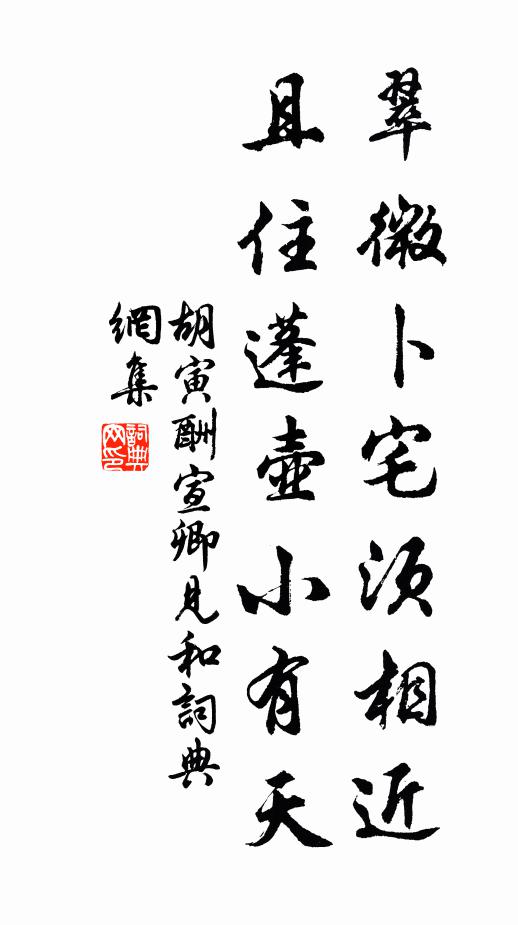 翠微卜宅須相近
且住蓬壺小有天
胡寅酬宣卿見和詞典
網集
詞典网印